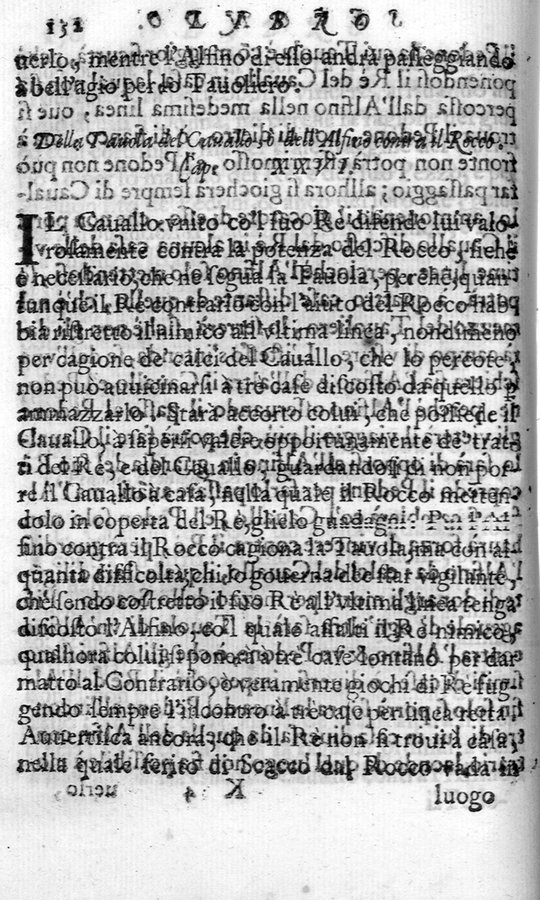 152
uerlo, mentre l'Alfino di esso andrà passeggiando
a bell'agio per lo Tauoliero.
Della Tauola del Cauallo, ò dell'Alfino contra il Rocco.
Cap.
IL Cauallo vnito co'l suo Re difende lui valo-
rosamente contra la potenza del Rocco, siche
è necessario, che ne segua la Tauola, perche, quan
tunque il Re contrario con l'aiuto del Rocco hab
bia ristretto il nimico all'vltima linea, nondimeno
per cagione de' calci del Cauallo, che lo percote,
non può auuicinarsi à tre case discosto da quello p
ammazzarlo. Starà accorto colui, che possiede il
Cauallo, a sapersi valere opportunamente de' trat
ti del Re, e del Cauallo, guardandosi di non por-
re il Cauallo à casa, nella quale il Rocco metten
dolo in coperta del Re, glielo guadagni. Per l'Al
fino contra il Rocco cagiona la Tauola, ma con al
quanta difficoltà; chi lo gouerna dee star vigilante,
che sendo costretto il suo Re all'vltima linea tenga
discosto l'Alfino, co'l quale assalti il Re nimico,
qualhora colui si ponerà a tre case lontano per dar
matto al Contrario, ò veramente giochi di Re fug
gendo sempre l'incontro a tre case per linea retta.
Auuertisca ancora, che il Re non si troui à casa,
nella quale ferito di Scacco dal Rocco vada in
luogo